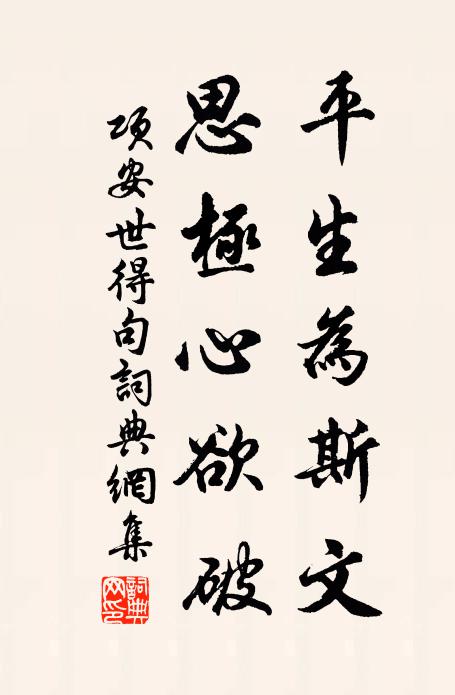 平生為斯文
思極心欲破
項安世得句詞典網集
詞典網印